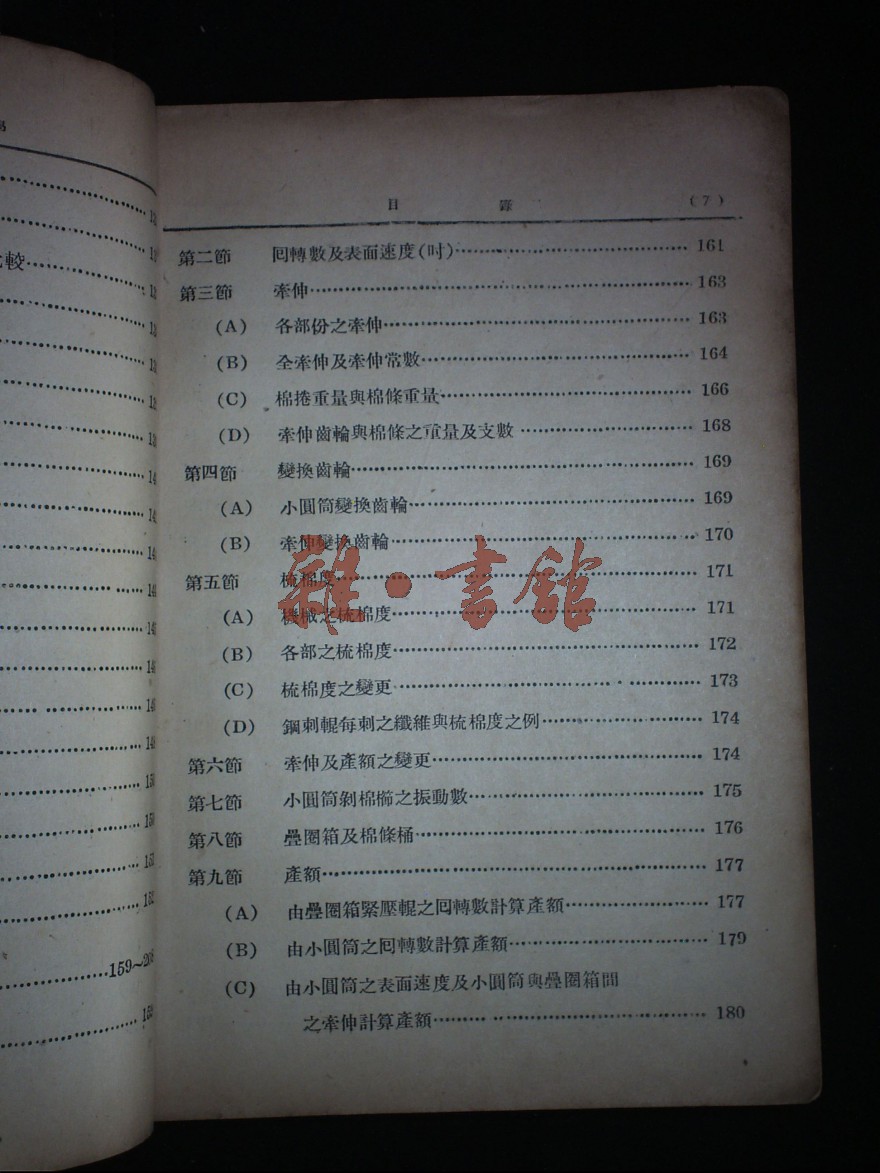 比較……………
159~208
目 錄 (7)
第二節 囘轉數及表面速度(吋)…………………… 161
第三節 牽伸…………………………………… 163
(A) 各部份之牽伸…………………………… 163
(B) 全牽伸及牽伸常數……………………… 164
(C) 棉捲重量與棉條重量…………………… 166
(D) 牽伸齒輪與棉條之重量及支數 …………… 168
第四節 變換齒輪……………………………… 169
(A) 小圓筒變換齒輪………………………… 169
(B) 牽伸變換齒輪…………………………… 170
第五節 梳棉度………………………………… 171
(A) 機械之梳棉度…………………………… 171
(B) 各部之梳棉度…………………………… 172
(C) 梳棉度之變更…………………………… 173
(D) 鋼刺輥每刺之纖維與梳棉度之例………… 174
第六節 牽伸及產額之變更…………………… 174
第七節 小圓筒剝棉櫛之振動數……………… 175
第八節 疊圈箱及棉條桶……………………… 176
第九節 產額…………………………………… 177
(A) 由疊圈箱緊壓輥之囘轉數計算產額……… 177
(B) 由小圓筒之囘轉數計算產額…………… 179
(C) 由小圓筒之表面速度及小圓筒與疊圈箱間
之牽伸計算產額…………………… 180
雜·書館